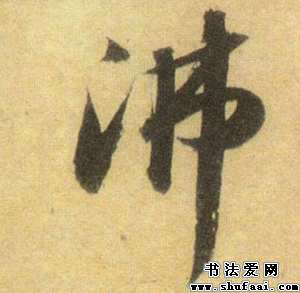 沛
书法爱网
www.shufaai.com